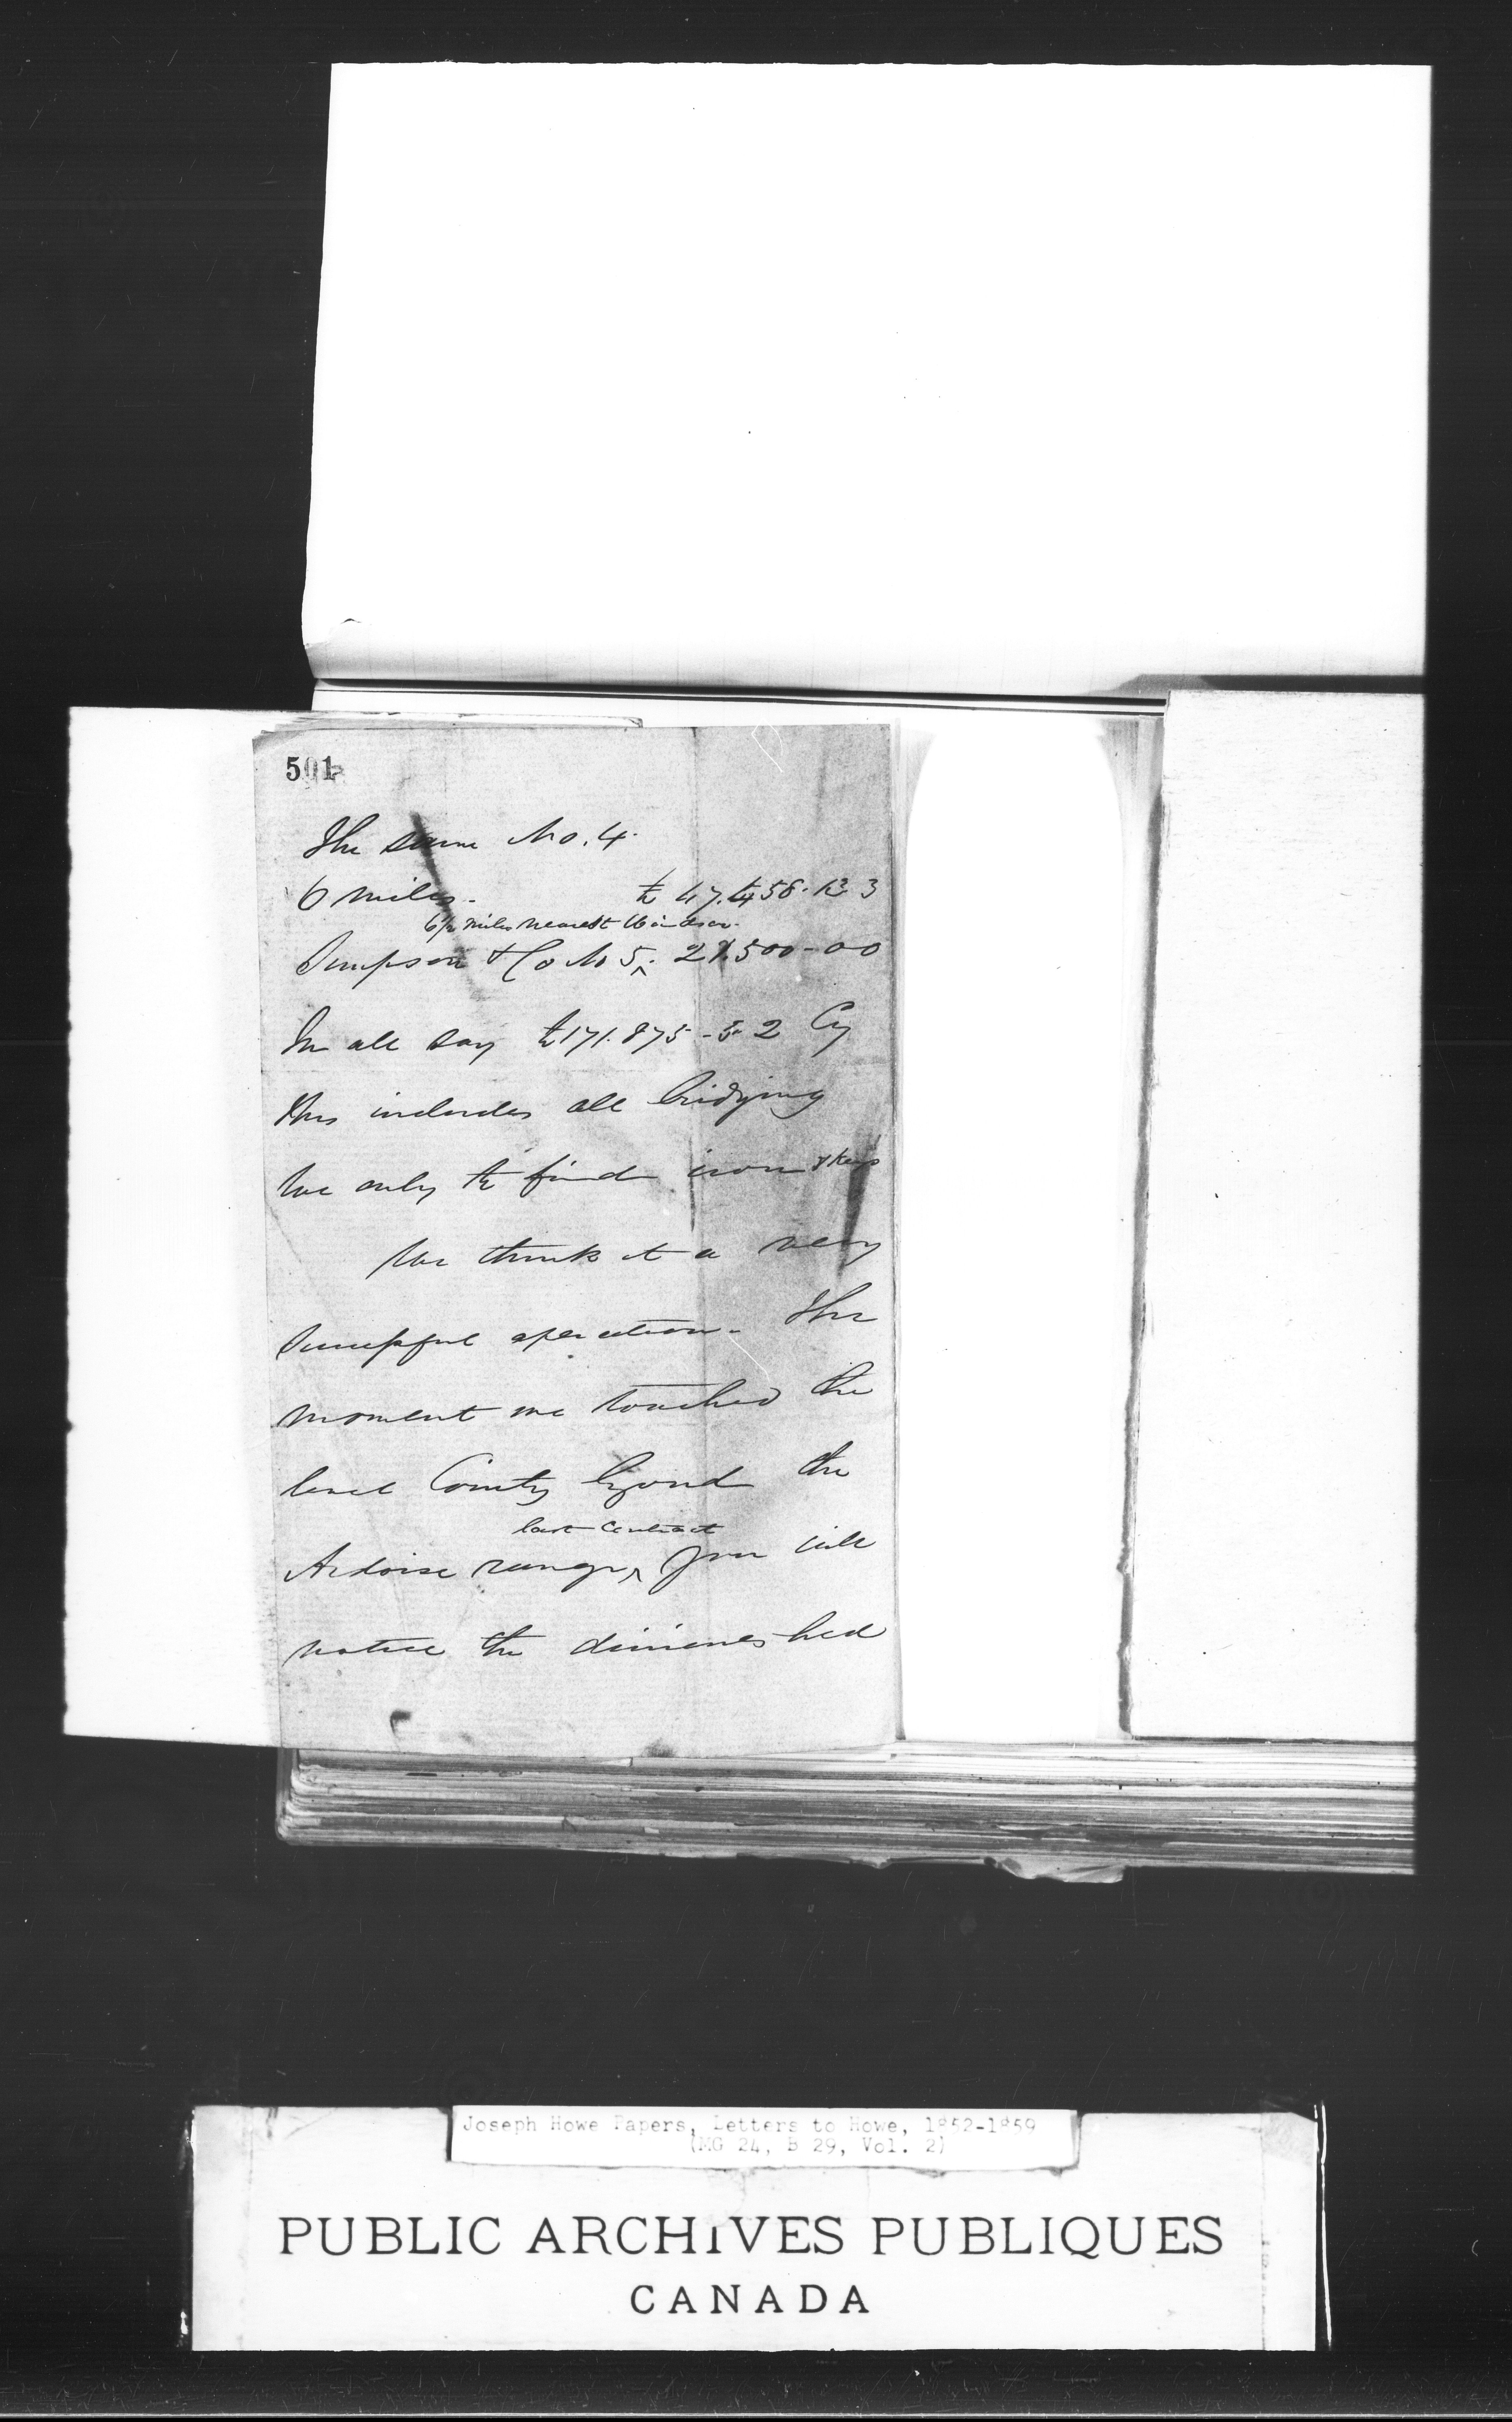 501
The same No. 4.
6 miles. £ 47.458.12.3
6½ miles nearest Windsor.
Simpson & Co No 5. 27.500-00
In all say £171.875-5-2 Cy
this includes all bridging
We only to find iron &
We think it a very
successful operation. The
moment we touched the
level County beyond the
last contract
Ardoise range, you will
notice the diminished
Joseph Howe Papers, Letters to Howe, 1852-1859
(MG 24, B 29, Vol. 2)
PUBLIC ARCHIVES PUBLIQUES
CANADA